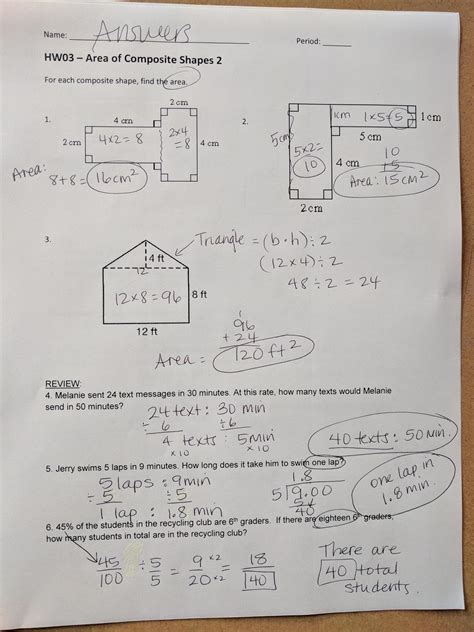 Name: Answers Period:
HW03 – Area of Composite Shapes 2
For each composite shape, find the area.
1.
4 cm
2 cm
2 cm
4 cm
4x2=8
2x4
=8
Area:
8+8=16cm²
2.
1cm
1x5=5
1 cm
5cm
5 cm
5x2=
10
4 cm
2 cm
10
+5
Area: 15cm²
3.
4 ft
12'
12x8=96
8 ft
12 ft
Triangle = (b·h)÷2
(12x4)÷2
48÷2=24
1
96
+24
Area = 120ft²
REVIEW:
4. Melanie sent 24 text messages in 30 minutes. At this rate, how many texts would Melanie
send in 50 minutes?
24 text: 30 min
÷6 ÷6
4 texts: 5min
x10 x10
40 texts: 50min.
5. Jerry swims 5 laps in 9 minutes. How long does it take him to swim one lap?
5 laps: 9min
÷5 ÷5
1 lap: 1.8 min
1.8
5 9.00
40
one lap in
1.8 min.
6. 45% of the students in the recycling club are 6th graders. If there are eighteen 6th graders,
how many students in total are in the recycling club?
45 ÷ 5 = 9 x2 = 18
100 5 20 x2 40
There are
40 total
students.